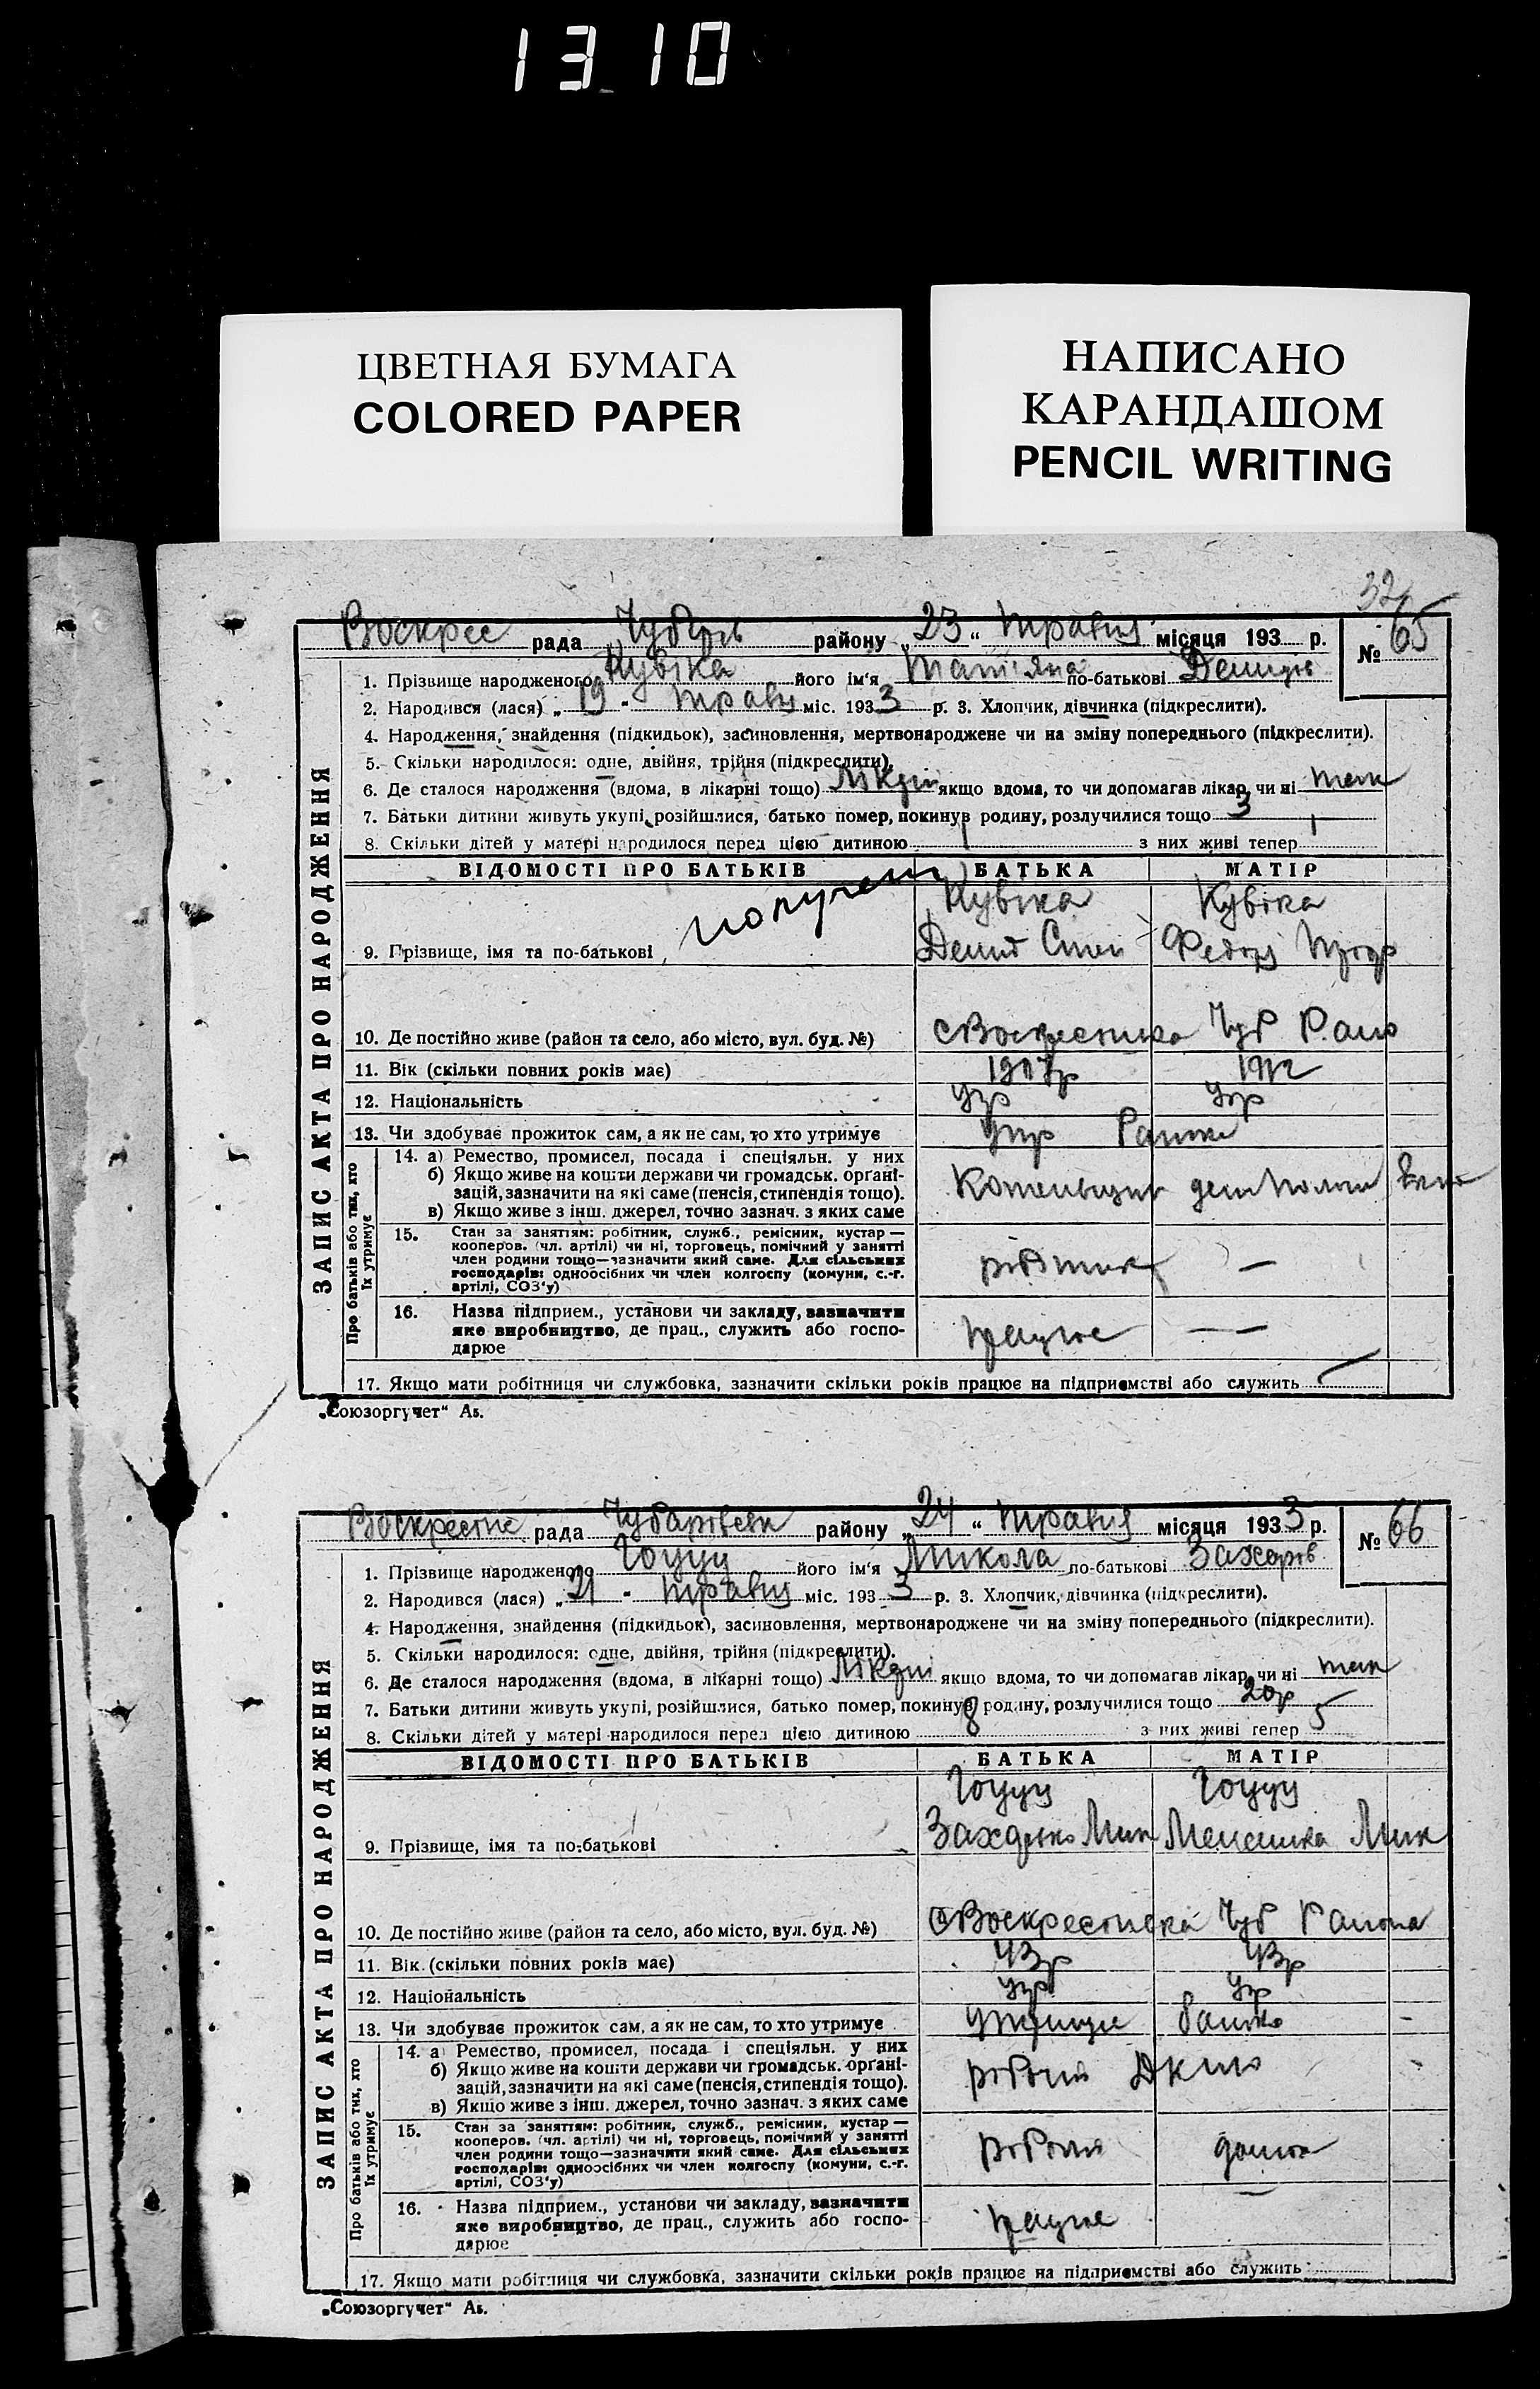 13 10
ЦВЕТНАЯ БУМАГА
COLORED PAPER
НАПИСАНО
КАРАНДАШОМ
PENCIL WRITING
32
Воскрес рада Чуб район району „ 23 “ травня місяця 193 р. № 65
ЗАПИС АКТА ПРО НАРОДЖЕННЯ
1. Прізвище народженого Кувіка його ім'я Тат'яна по-батькові Демидів
2. Народився (лася) „ 19 “ травня міс. 193 3 р. 3. Хлопчик, дівчинка (підкреслити).
4. Народження, знайдення (підкидьок), засиновлення, мертвонароджене чи на зміну попереднього (підкреслити).
5. Скільки народилося: одне, двійня, трійня (підкреслити).
6. Де сталося народження (вдома, в лікарні тощо) якщо вдома, то чи допомагав лікар, чи ні так
7. Батьки дитини живуть укупі, розійшлися, батько помер, покинув родину, розлучилися тощо 3
8. Скільки дітей у матері народилося перед цією дитиною 1 з них живі тепер 1
ВІДОМОСТІ ПРО БАТЬКІВ БАТЬКА МАТІР
Кувіка Кувіка
9. Прізвище, імя та по-батькові Демид
10. Де постійно живе (район та село, або місто, вул. буд. №) с Воскрестнка Чуб Раио
11. Вік (скільки повних років має) 1907р 1912
12. Національність Укр Укр
13. Чи здобуває прожиток сам, а як не сам, то хто утримує
Про батьків або тих, хто їх утримує
14. а) Ремество, промисел, посада і спеціяльн. у них
б) Якщо живе на кошти держави чи громадськ. організацій, зазначити на які саме (пенсія, стипендія тощо).
в) Якщо живе з інш. джерел, точно зазнач. з яких саме
15. Стан за заняттям: робітник, служб., ремісник, кустар —
кооперов. (чл. артілі) чи ні, торговець, помічний у занятті
член родини тощо—зазначити який саме. Для сільських
господарів: одноосібних чи член колгоспу (комуни, с.-г.
артілі, СОЗ'у) робітник —
16. Назва підприєм., установи чи закладу, зазначити
яке виробництво, де прац., служить або госпо-
дарює працює — —
17. Якщо мати робітниця чи службовка, зазначити скільки років працює на підприємстві або служить
„Союзоргучет“ Аб.
Воскрестнс рада Чубарівськ району „ 24 “ травня місяця 193 3 р. № 66
ЗАПИС АКТА ПРО НАРОДЖЕННЯ
1. Прізвище народженого Гоцуц його ім'я Микола по-батькові Захарів
2. Народився (лася) „ 21 “ травня міс. 193 3 р. 3. Хлопчик, дівчинка (підкреслити).
4. Народження, знайдення (підкидьок), засиновлення, мертвонароджене чи на зміну попереднього (підкреслити).
5. Скільки народилося: одне, двійня, трійня (підкреслити).
6. Де сталося народження (вдома, в лікарні тощо) якщо вдома, то чи допомагав лікар, чи ні так
7. Батьки дитини живуть укупі, розійшлися, батько помер, покинув родину, розлучилися тощо 20р
8. Скільки дітей у матері народилося перед цією дитиною 8 з них живі тепер 5
ВІДОМОСТІ ПРО БАТЬКІВ БАТЬКА МАТІР
Гоцуц Гоцуц
9. Прізвище, імя та по-батькові Мик Мик
10. Де постійно живе (район та село, або місто, вул. буд. №) с Воскрестнска Чуб Раиона
11. Вік (скільки повних років має) 43р 43р
12. Національність Укр Укр
13. Чи здобуває прожиток сам, а як не сам, то хто утримує
Про батьків або тих, хто їх утримує
14. а) Ремество, промисел, посада і спеціяльн. у них
б) Якщо живе на кошти держави чи громадськ. організацій, зазначити на які саме (пенсія, стипендія тощо).
в) Якщо живе з інш. джерел, точно зазнач. з яких саме
15. Стан за заняттям: робітник, служб., ремісник, кустар —
кооперов. (чл. артілі) чи ні, торговець, помічний у занятті
член родини тощо—зазначити який саме. Для сільських
господарів: одноосібних чи член колгоспу (комуни, с.-г.
артілі, СОЗ'у)
16. Назва підприєм., установи чи закладу, зазначити
яке виробництво, де прац., служить або госпо-
дарює працює
17. Якщо мати робітниця чи службовка, зазначити скільки років працює на підприємстві або служить
„Союзоргучет“ Аб.